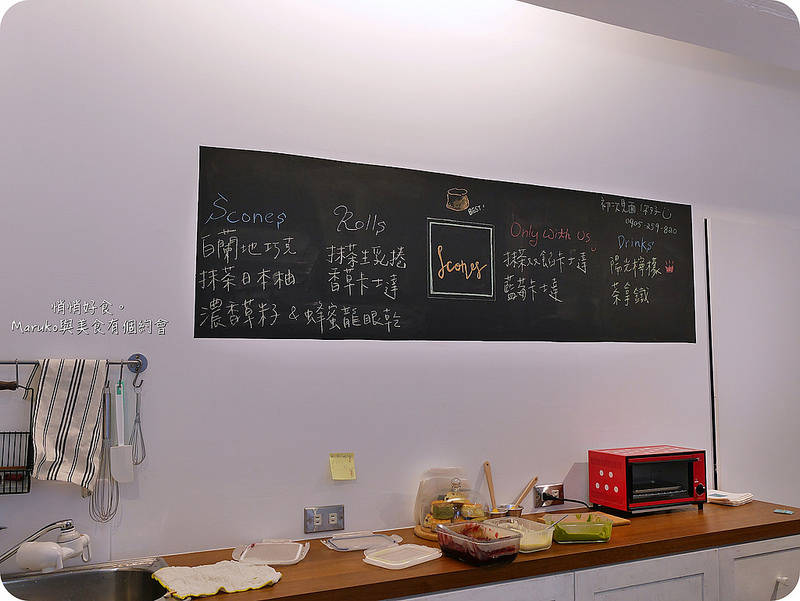 Scones
白蘭地巧克
抹茶日本柚
濃香草籽 & 蜂蜜龍眼乾
Rolls
抹茶生乳捲
香草卡士達
BEST!
Scones
Only With Us
藍莓卡士達
初次見面
0905-259-820
Drinks
陽光檸檬
茶拿鐵
悄悄好食。
Maruko與美食有個約會